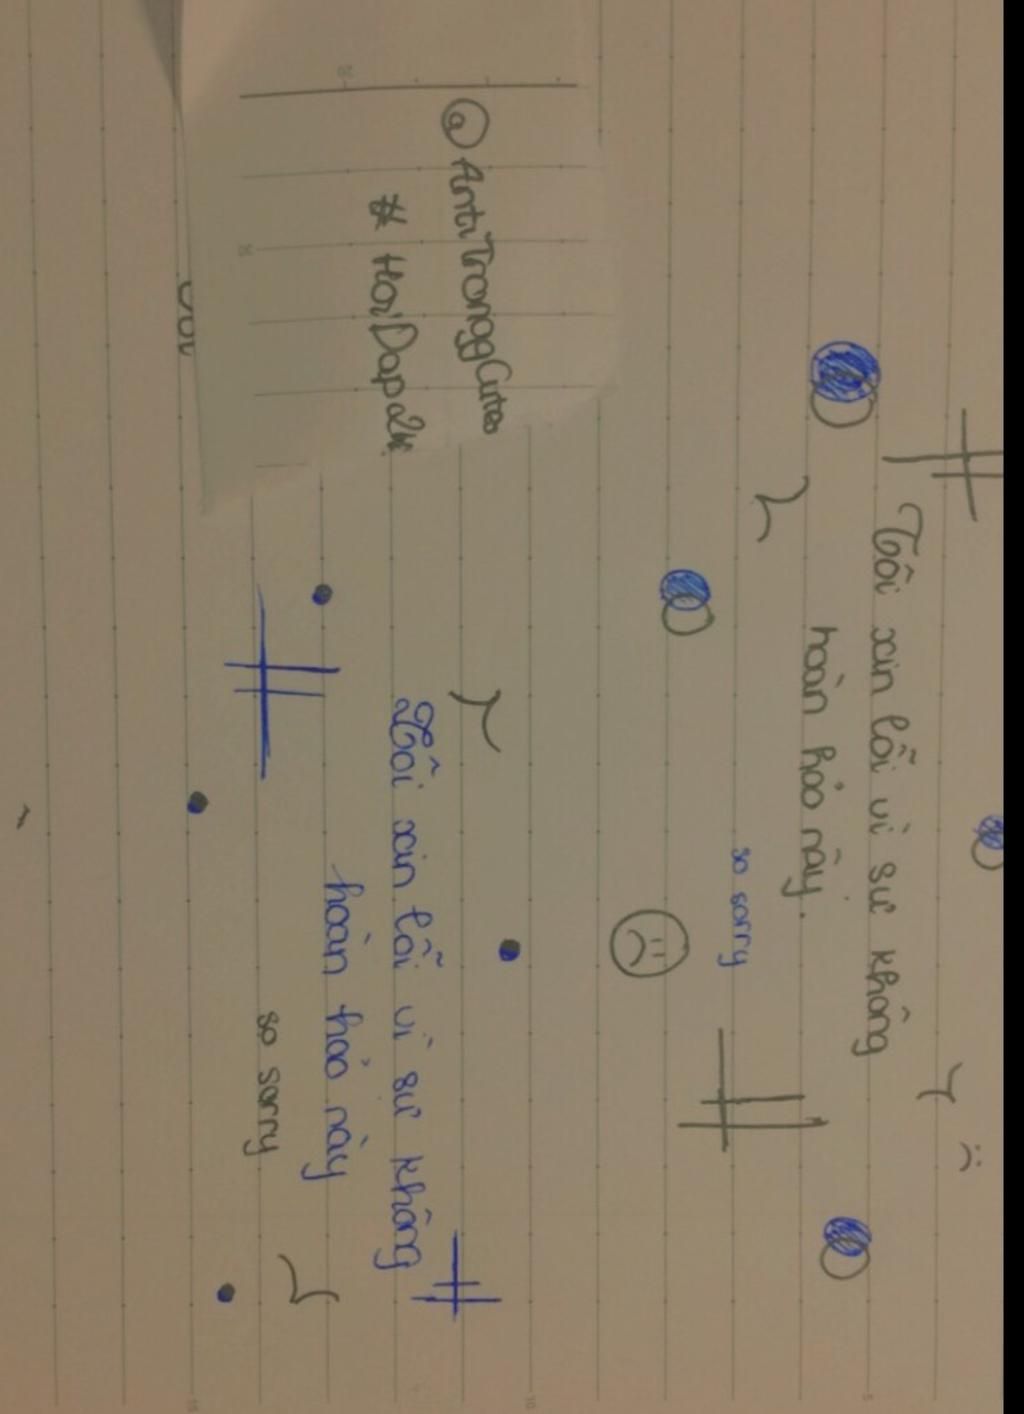 Tôi xin lỗi vì sự không
hoàn hảo này.
so sorry
Tôi xin lỗi vì sự không
hoàn hảo này
so sorry
@AntiTranggCuteo
#HoiDap24h